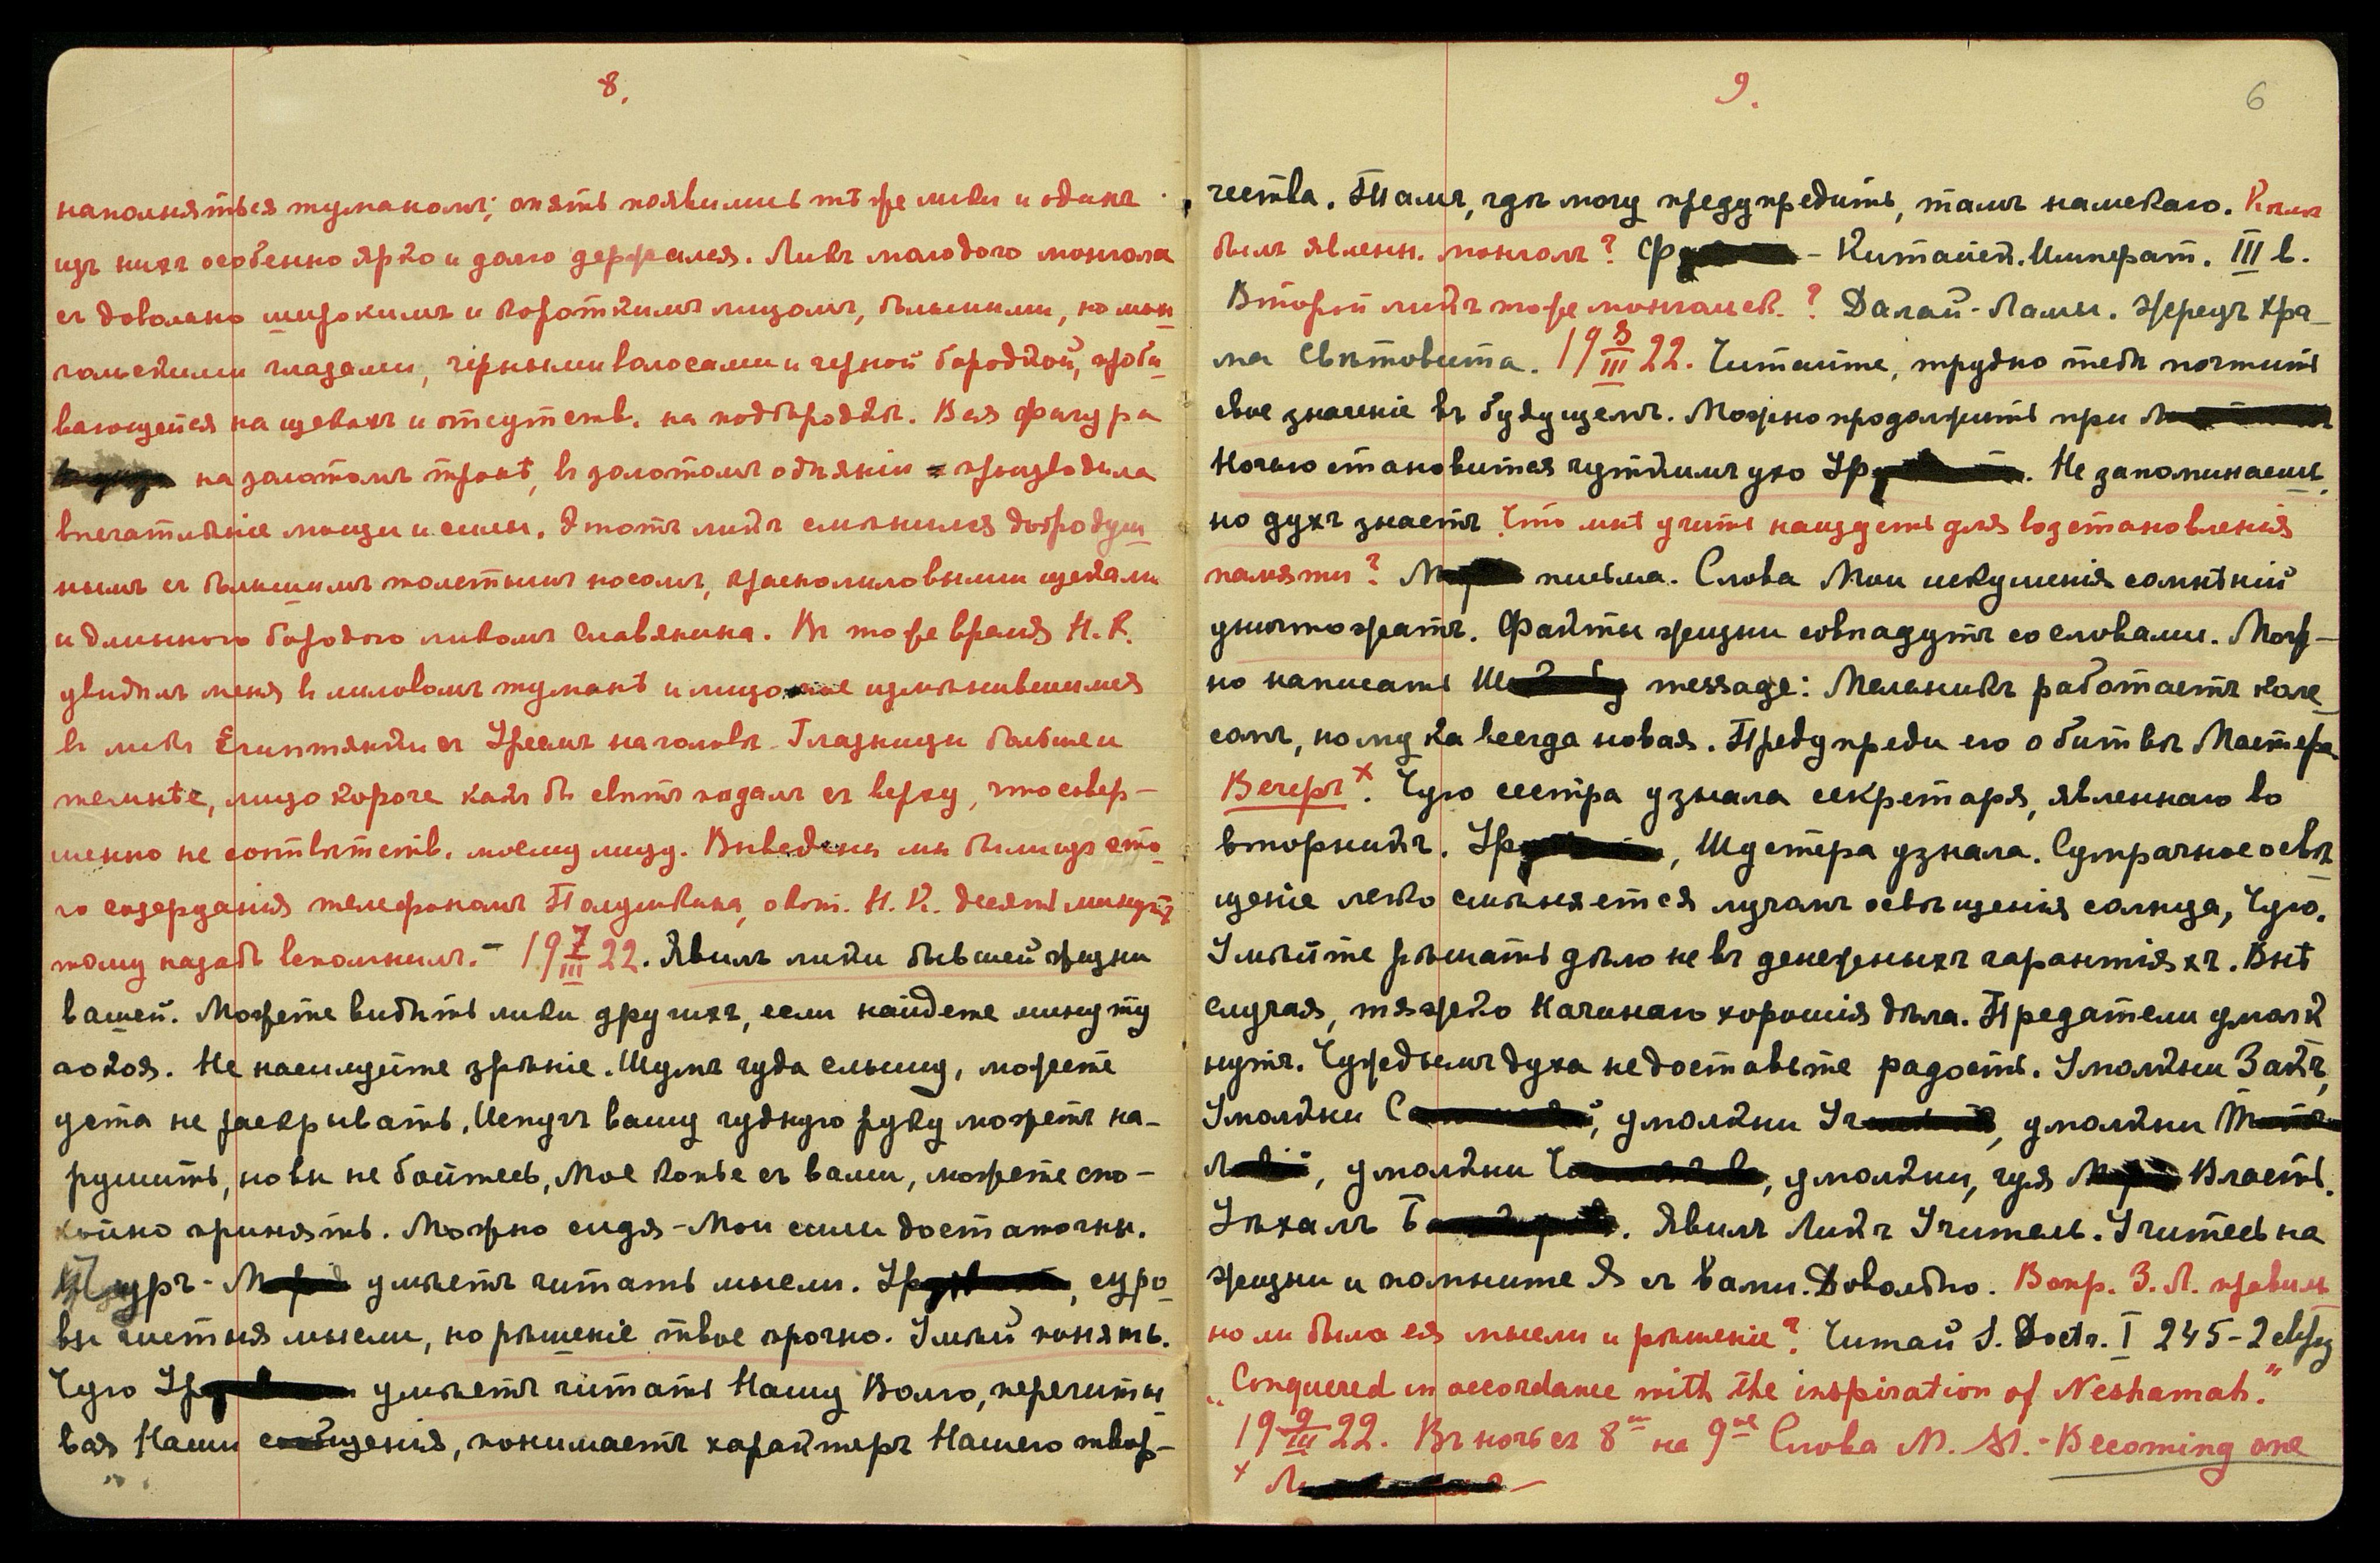 8.
наполняться туманомъ; опять появились тѣ же лики и одинъ
изъ нихъ особенно ярко и долго держался. Ликъ молодого монгола
съ довольно широкимъ и короткимъ лицомъ, большими, но мон-
гольскими глазами, чёрными волосами и черной бородкой, проби-
вающейся на щекахъ и отсутств. на подбородкѣ. Вся фигура
на золотомъ тронѣ, въ золотомъ одѣяніи производила
впечатлѣніе мощи и силы. Этотъ ликъ смѣнился добродуш-
нымъ съ большимъ толстымъ носомъ, краснолиловыми щеками
и длинною бородою ликомъ славянина. Въ то же время Н. К.
увидѣлъ меня въ лиловомъ туманѣ и лицо мое измѣнившимся
въ ликъ Египтянки съ Уреемъ на головѣ. Глазницы больше и
темнѣе, лицо короче какъ бы свѣтъ падалъ съ верху, что совер-
шенно не соотвѣтств. моему лицу. Выведены мы были изъ это-
го созерцанія телефономъ Полушкина, о кот. Н. К. десять минутъ
тому назадъ вспомнилъ. – 19 7/III 22. Явилъ лики бывшей жизни
вашей. Можете видѣть лики другихъ, если найдете минуту
покоя. Не насилуйте зрѣніе. Шумъ чуда слышу, можете
уста не раскрывать. Испугъ вашу чудную руку можетъ на-
рушить, но вы не бойтесь, Мое копье съ вами, можете спо-
койно принять. Можно сидя – Мои силы достаточны.
умѣетъ читать мысли. Ур, суро-
вы чистыя мысли, но рѣшеніе твое прочно. Умѣй понять.
Чую Ур умѣетъ читать Нашу Волю, перечиты-
вая Наши сообщенія, понимаетъ характеръ Нашего твор-
9.
6
чества. Тамъ, гдѣ могу предупредить, тамъ намекаю. Кѣмъ
былъ явленн. монголъ? Ф – Китайск. Император. III в.
Второй ликъ тоже монгольск.? Далай-Ламы. Жрецъ хра-
ма Свѣтовита. 19 8/III 22. Читайте, трудно тебѣ понять
свое значеніе въ будущемъ. Можно продолжить при
Ночью становится чуткимъ ухо Ур. Не запоминаешь,
но духъ знаетъ. Что мнѣ учить наизусть для возстановленія
памяти? М письма. Слова Мои искушенія сомнѣній
уничтожатъ. Факты жизни совпадутъ со словами. Мож-
но написать Ше message: Мельникъ работаетъ коле-
сомъ, но мука всегда новая. Предупреди его о битвѣ Мастера
Вечеръ x. Чую сестра узнала секретаря, явленнаго во
вторникъ. Ур, Шустера узнала. Сумрачное освѣ-
щеніе легко смѣняется лучамъ освѣщенія солнца, Чую.
Умѣйте рѣшать дѣло не въ денежныхъ гарантіяхъ. Внѣ
случая, тяжело Начинаю хорошія дѣла. Предатели умолк-
нутъ. Чужедымъ духа не доставьте радость. Умолкни Закъ,
Умолкни С, умолкни Уч, умолкни
Л, умолкни Ч, умолкни, чуя М Власть.
Уѣхалъ Б. Явилъ Ликъ Учитель. Учитесь на
жизни и помните Я съ Вами. Довольно. Вопр. З. Л. правиль-
но ли было ея мысли и рѣшеніе? Читай S. Doctr. I 245-2 сверху
„Conquered in accordance with the inspiration of Neshamah."
19 9/III 22. Въ ночь съ 8го на 9ое Слова М. М. - Becoming one
x Л